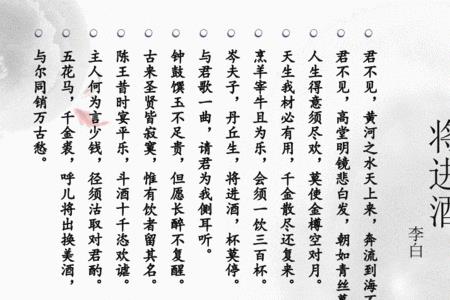 将进酒
李白
君不见，黄河之水天上来，奔流到海
君不见，高堂明镜悲白发，朝如青丝
人生得意须尽欢，莫使金樽空对月。
天生我材必有用，千金散尽还复来。
烹羊宰牛且为乐，会须一饮三百杯。
岑夫子，丹丘生，将进酒，杯莫停。
与君歌一曲，请君为我侧耳听。
钟鼓馔玉不足贵，但愿长醉不复醒。
古来圣贤皆寂寞，惟有饮者留其名。
陈王昔时宴平乐，斗酒十千恣欢谑。
主人何为言少钱，径须沽取对君酌。
五花马，千金裘，呼儿将出换美酒，
与尔同销万古愁。